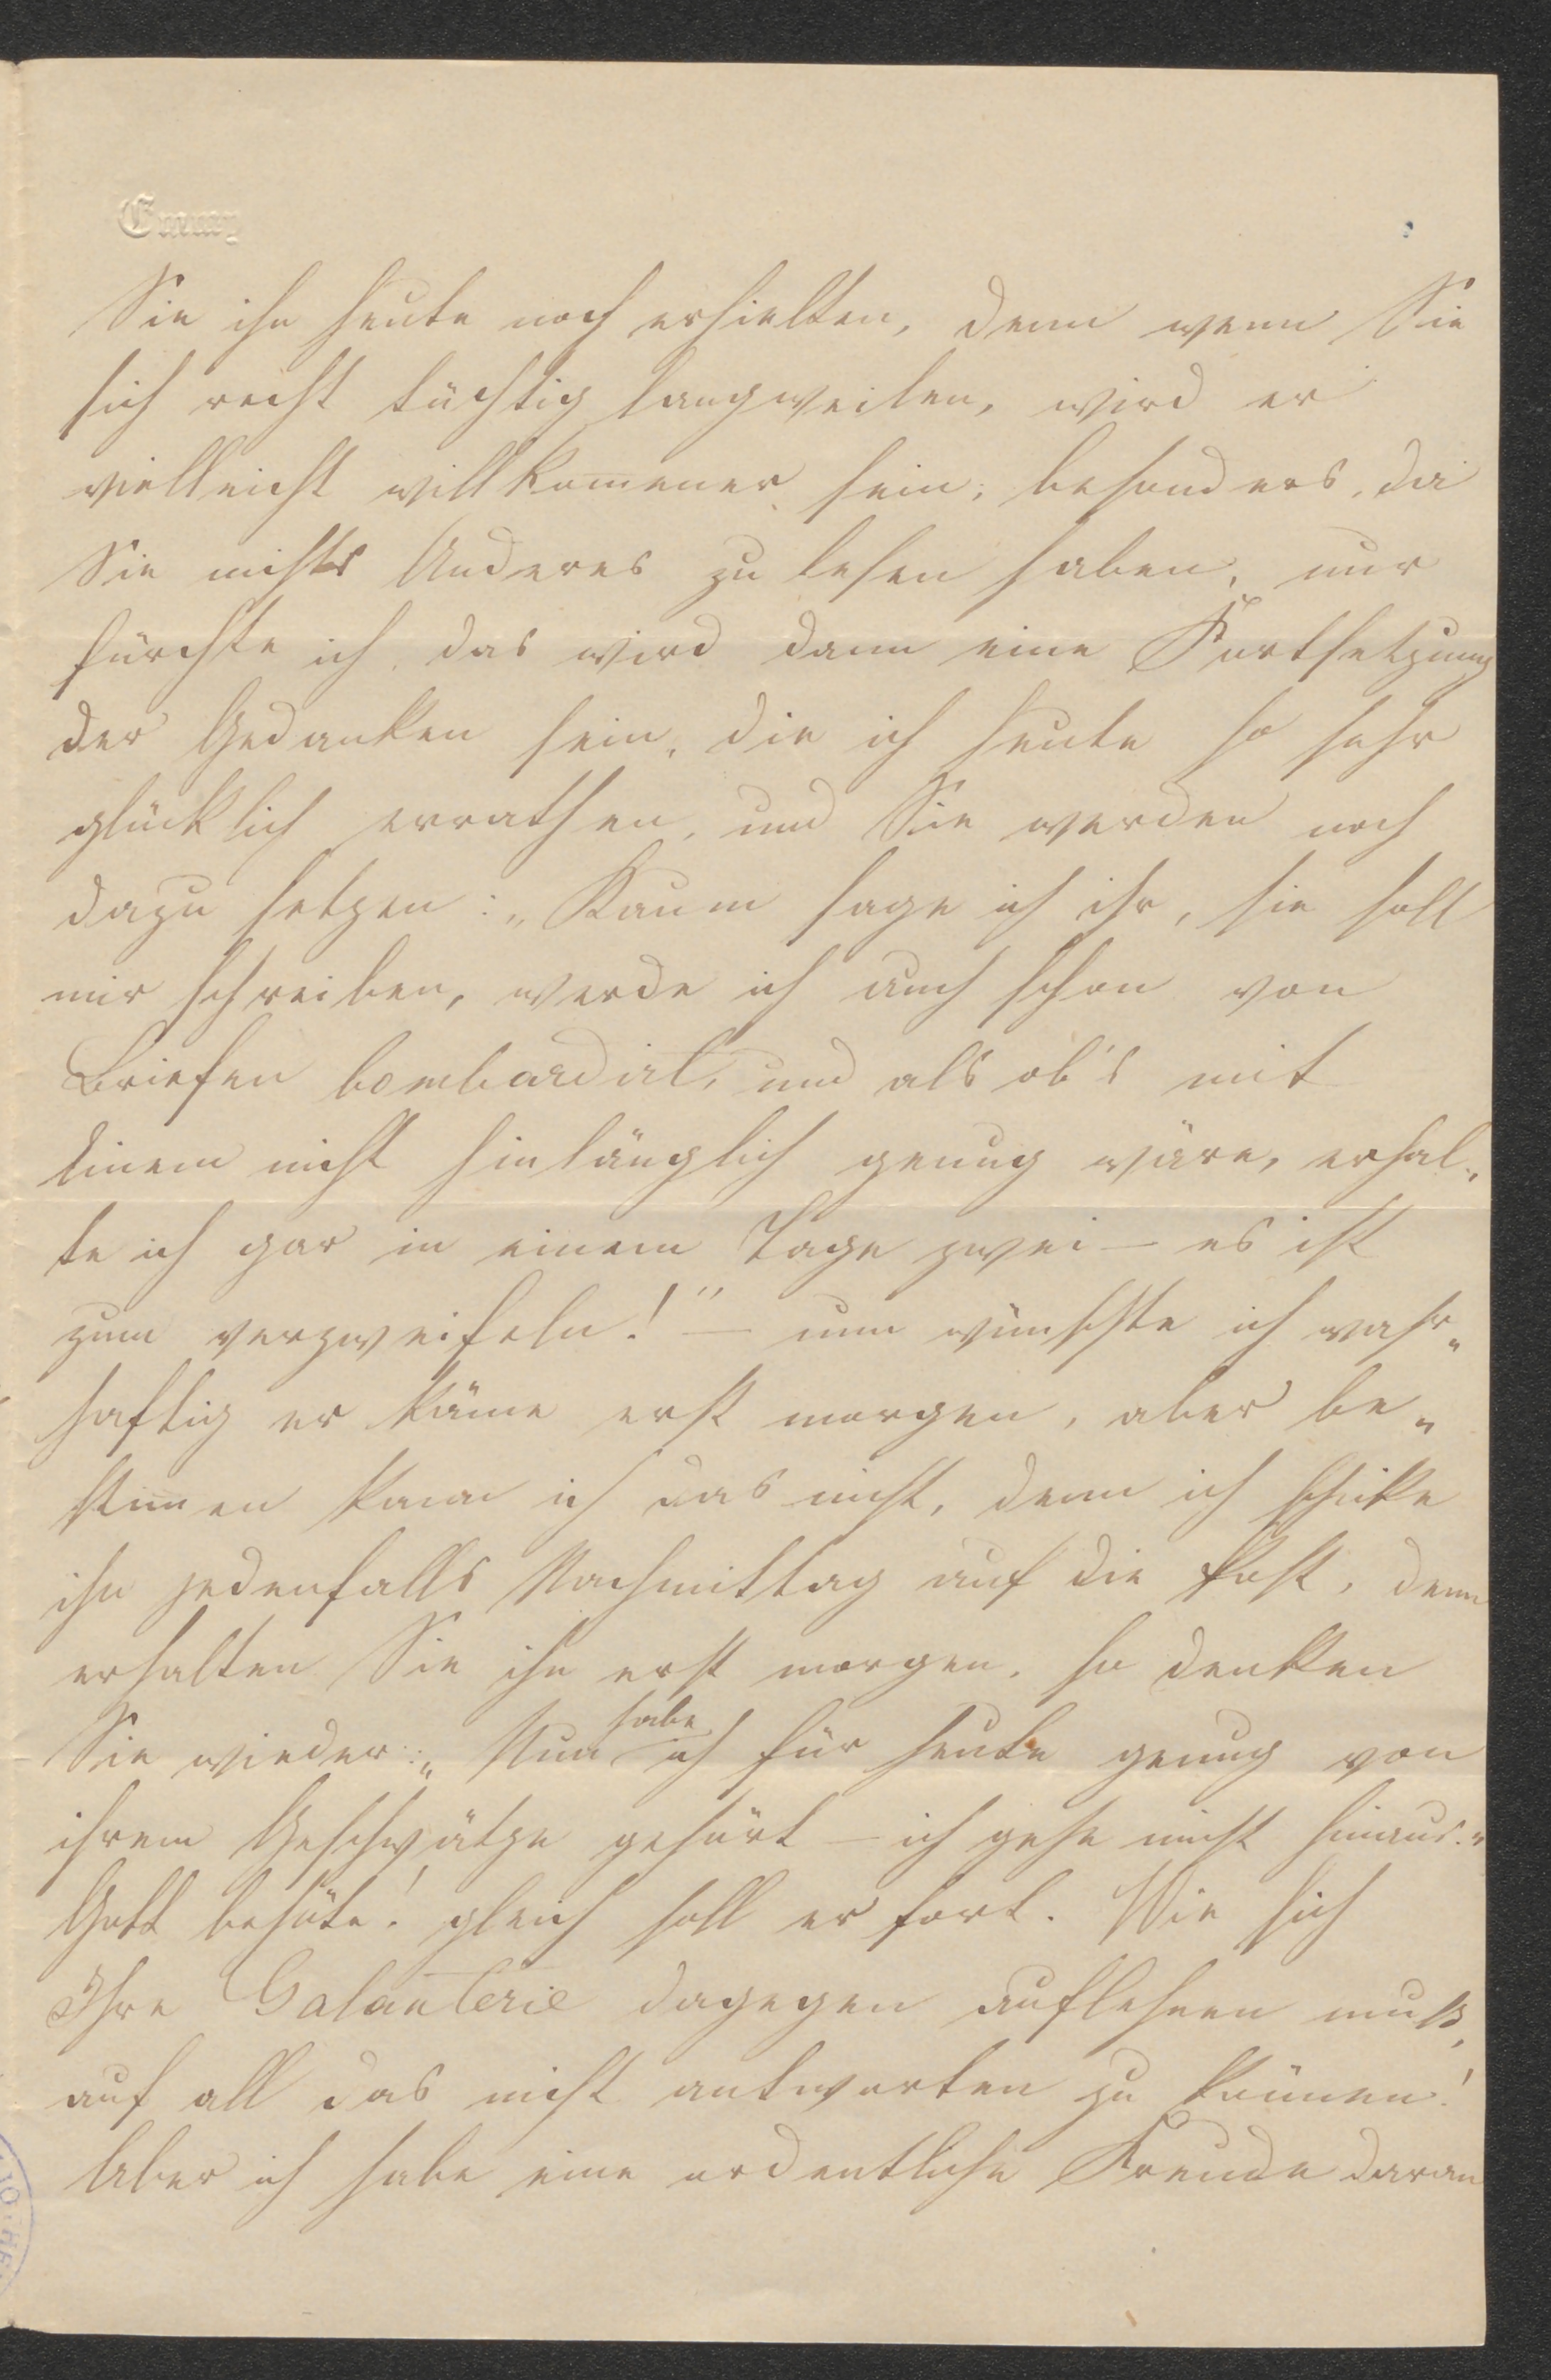 Emmy
Sie ihn heute noch erhielten, denn wenn Sie
sich recht tüchtig langweilen, wird er
vielleicht willkom̅ener sein, besonders, da
Sie nichts Anderes zu lesen haben, nur
fürchte ich das wird dann eine Fortsetzung
der Gedanken sein, die ich heute so sehr
glücklich errathen, und Sie werden noch
dazu setzen: „Kaum sage ich ihr, sie soll
mir schreiben, werde ich auch schon von
Briefen bombardirt, und als ob's mit
Einem nicht hinlänglich genug wäre, erhal„
te ich gar in einem Tage zwei — es ist
zum verzweifeln!" — nun wünschte ich wahr„
haftig er käme erst morgen, aber be„
stim̅en kann ich das nicht, denn ich schicke
ihn jedenfalls Nachmittag auf die Post, denn
erhalten Sie ihn erst morgen, so denken
Sie wieder: „Nun habe ich für heute genug von
ihrem Geschwätze gehört — ich gehe nicht hinaus."
Gott behüte! gleich soll er fort. Wie sich
Ihre Galanterie dagegen auflehnen muß,
auf all das nicht antworten zu können!
Aber ich habe eine ordentliche Freude daran